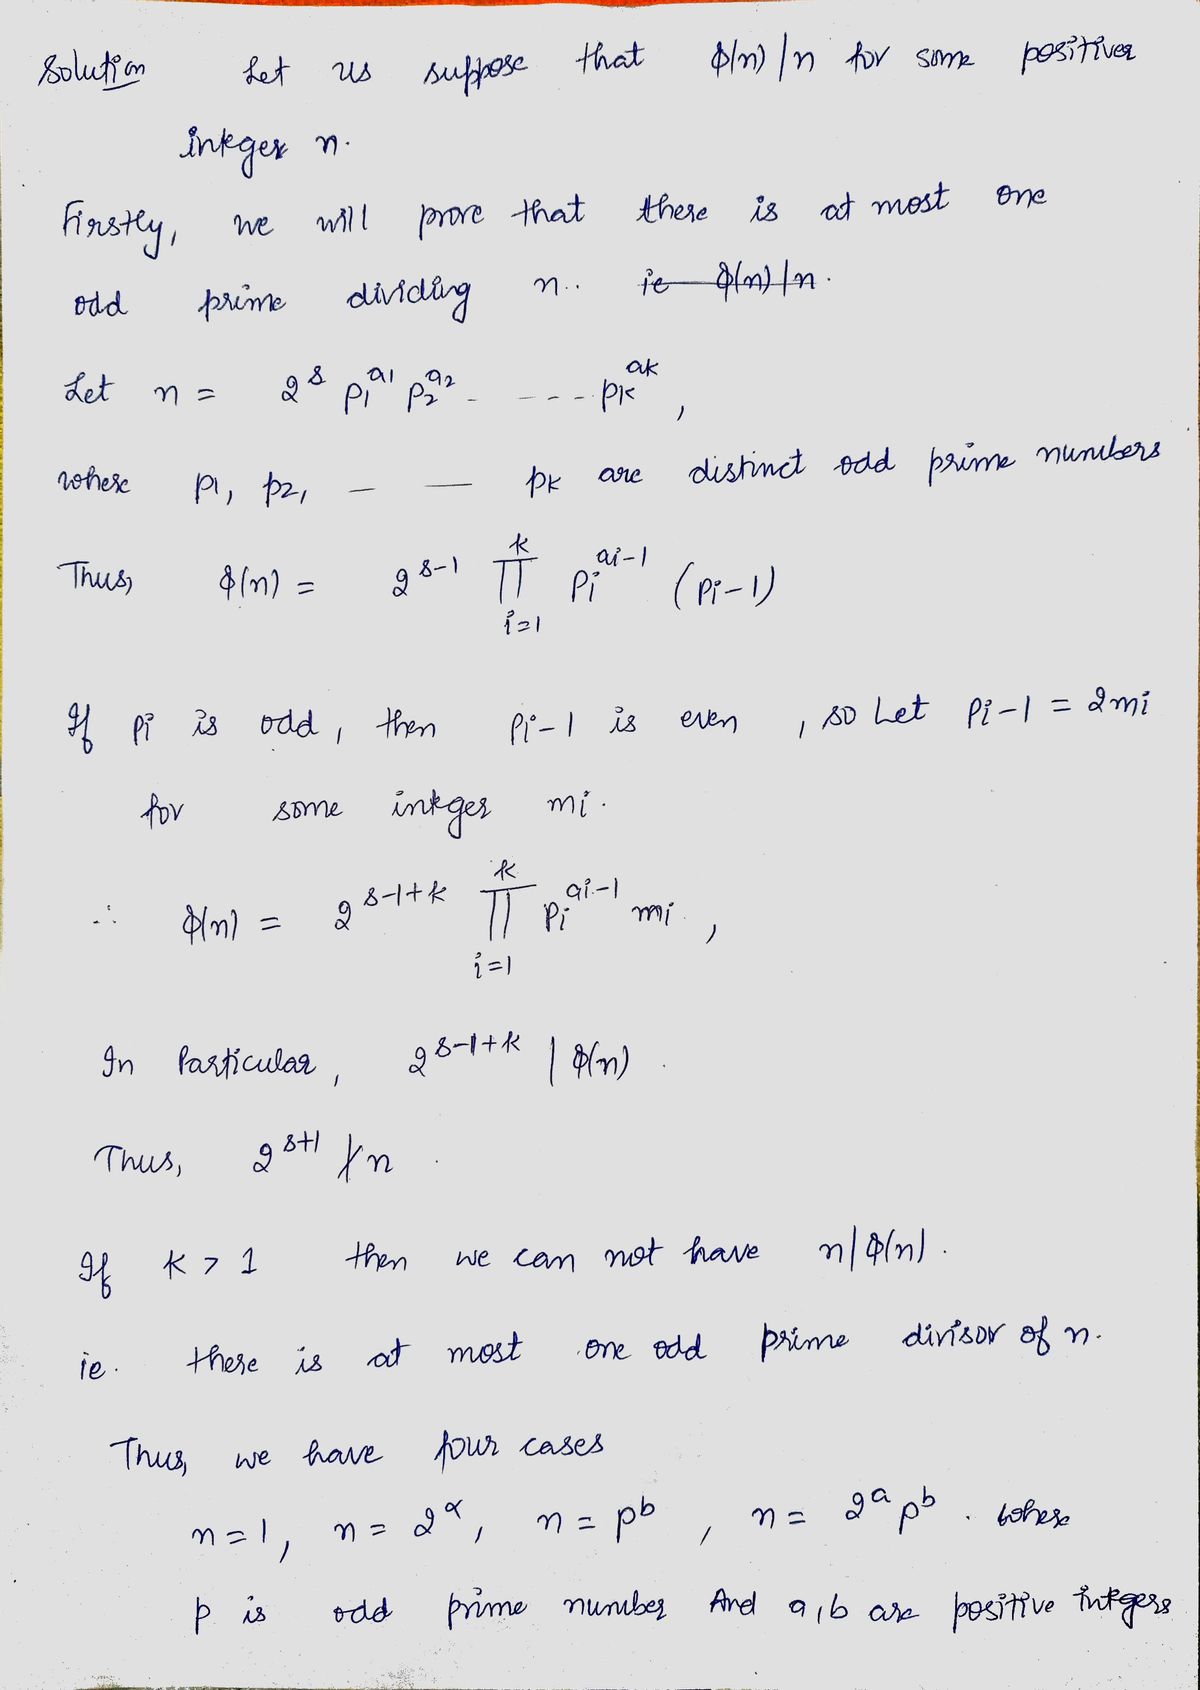 Solution Let us suppose that φ(n) | n for some positives
integer n.
Firstly, we will prove that there is at most one
odd prime dividing n.. ie φ(n) | n.
Let n = 2^s p1^a1 p2^a2 - - - - - pk^ak ,
where p1, p2, — — pk are distinct odd prime numbers
Thus, φ(n) = 2^(s-1) ∏_{i=1}^{k} pi^(ai-1) (pi-1)
If pi is odd, then pi-1 is even , so Let pi-1 = 2mi
for some integer mi.
∴ φ(n) = 2^(s-1+k) ∏_{i=1}^{k} pi^(ai-1) mi ,
In Particular, 2^(s-1+k) | φ(n) .
Thus, 2^(s+1) ∤ n .
If k > 1 then we can not have n | φ(n) .
ie. there is at most one odd prime divisor of n.
Thus, we have four cases
n=1, n = 2^α, n = p^b , n = 2^a p^b . where
p is odd prime number And a, b are positive integers